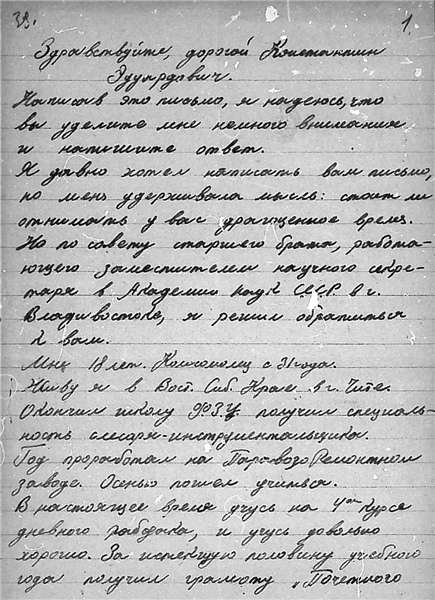 39. 1.
Здравствуйте, дорогой Константин
Эдуардович.
Написав это письмо, я надеюсь, что
вы уделите мне немного внимания
и напишите ответ.
Я давно хотел написать вам письмо,
но меня удерживала мысль: стоит ли
отнимать у вас драгоценное время.
Но по совету старшего брата, работа-
ющего заместителем научного секре-
таря в Академии Наук СССР в г.
Владивостоке, я решил обратиться
к вам.
Мне 18 лет. Комсомолец с 31 года.
Живу я в Вост. Сиб. Крае в г. Чите.
Окончил школу Ф.З.У. получил специаль-
ность слесаря-инструментальщика.
Год проработал на ПаровозоРемонтном
заводе. Осенью пошел учиться.
В настоящее время учусь на 4ом курсе
дневного рабфака, и учусь довольно
хорошо. За истекшую половину учебного
года получил грамоту „Почетного